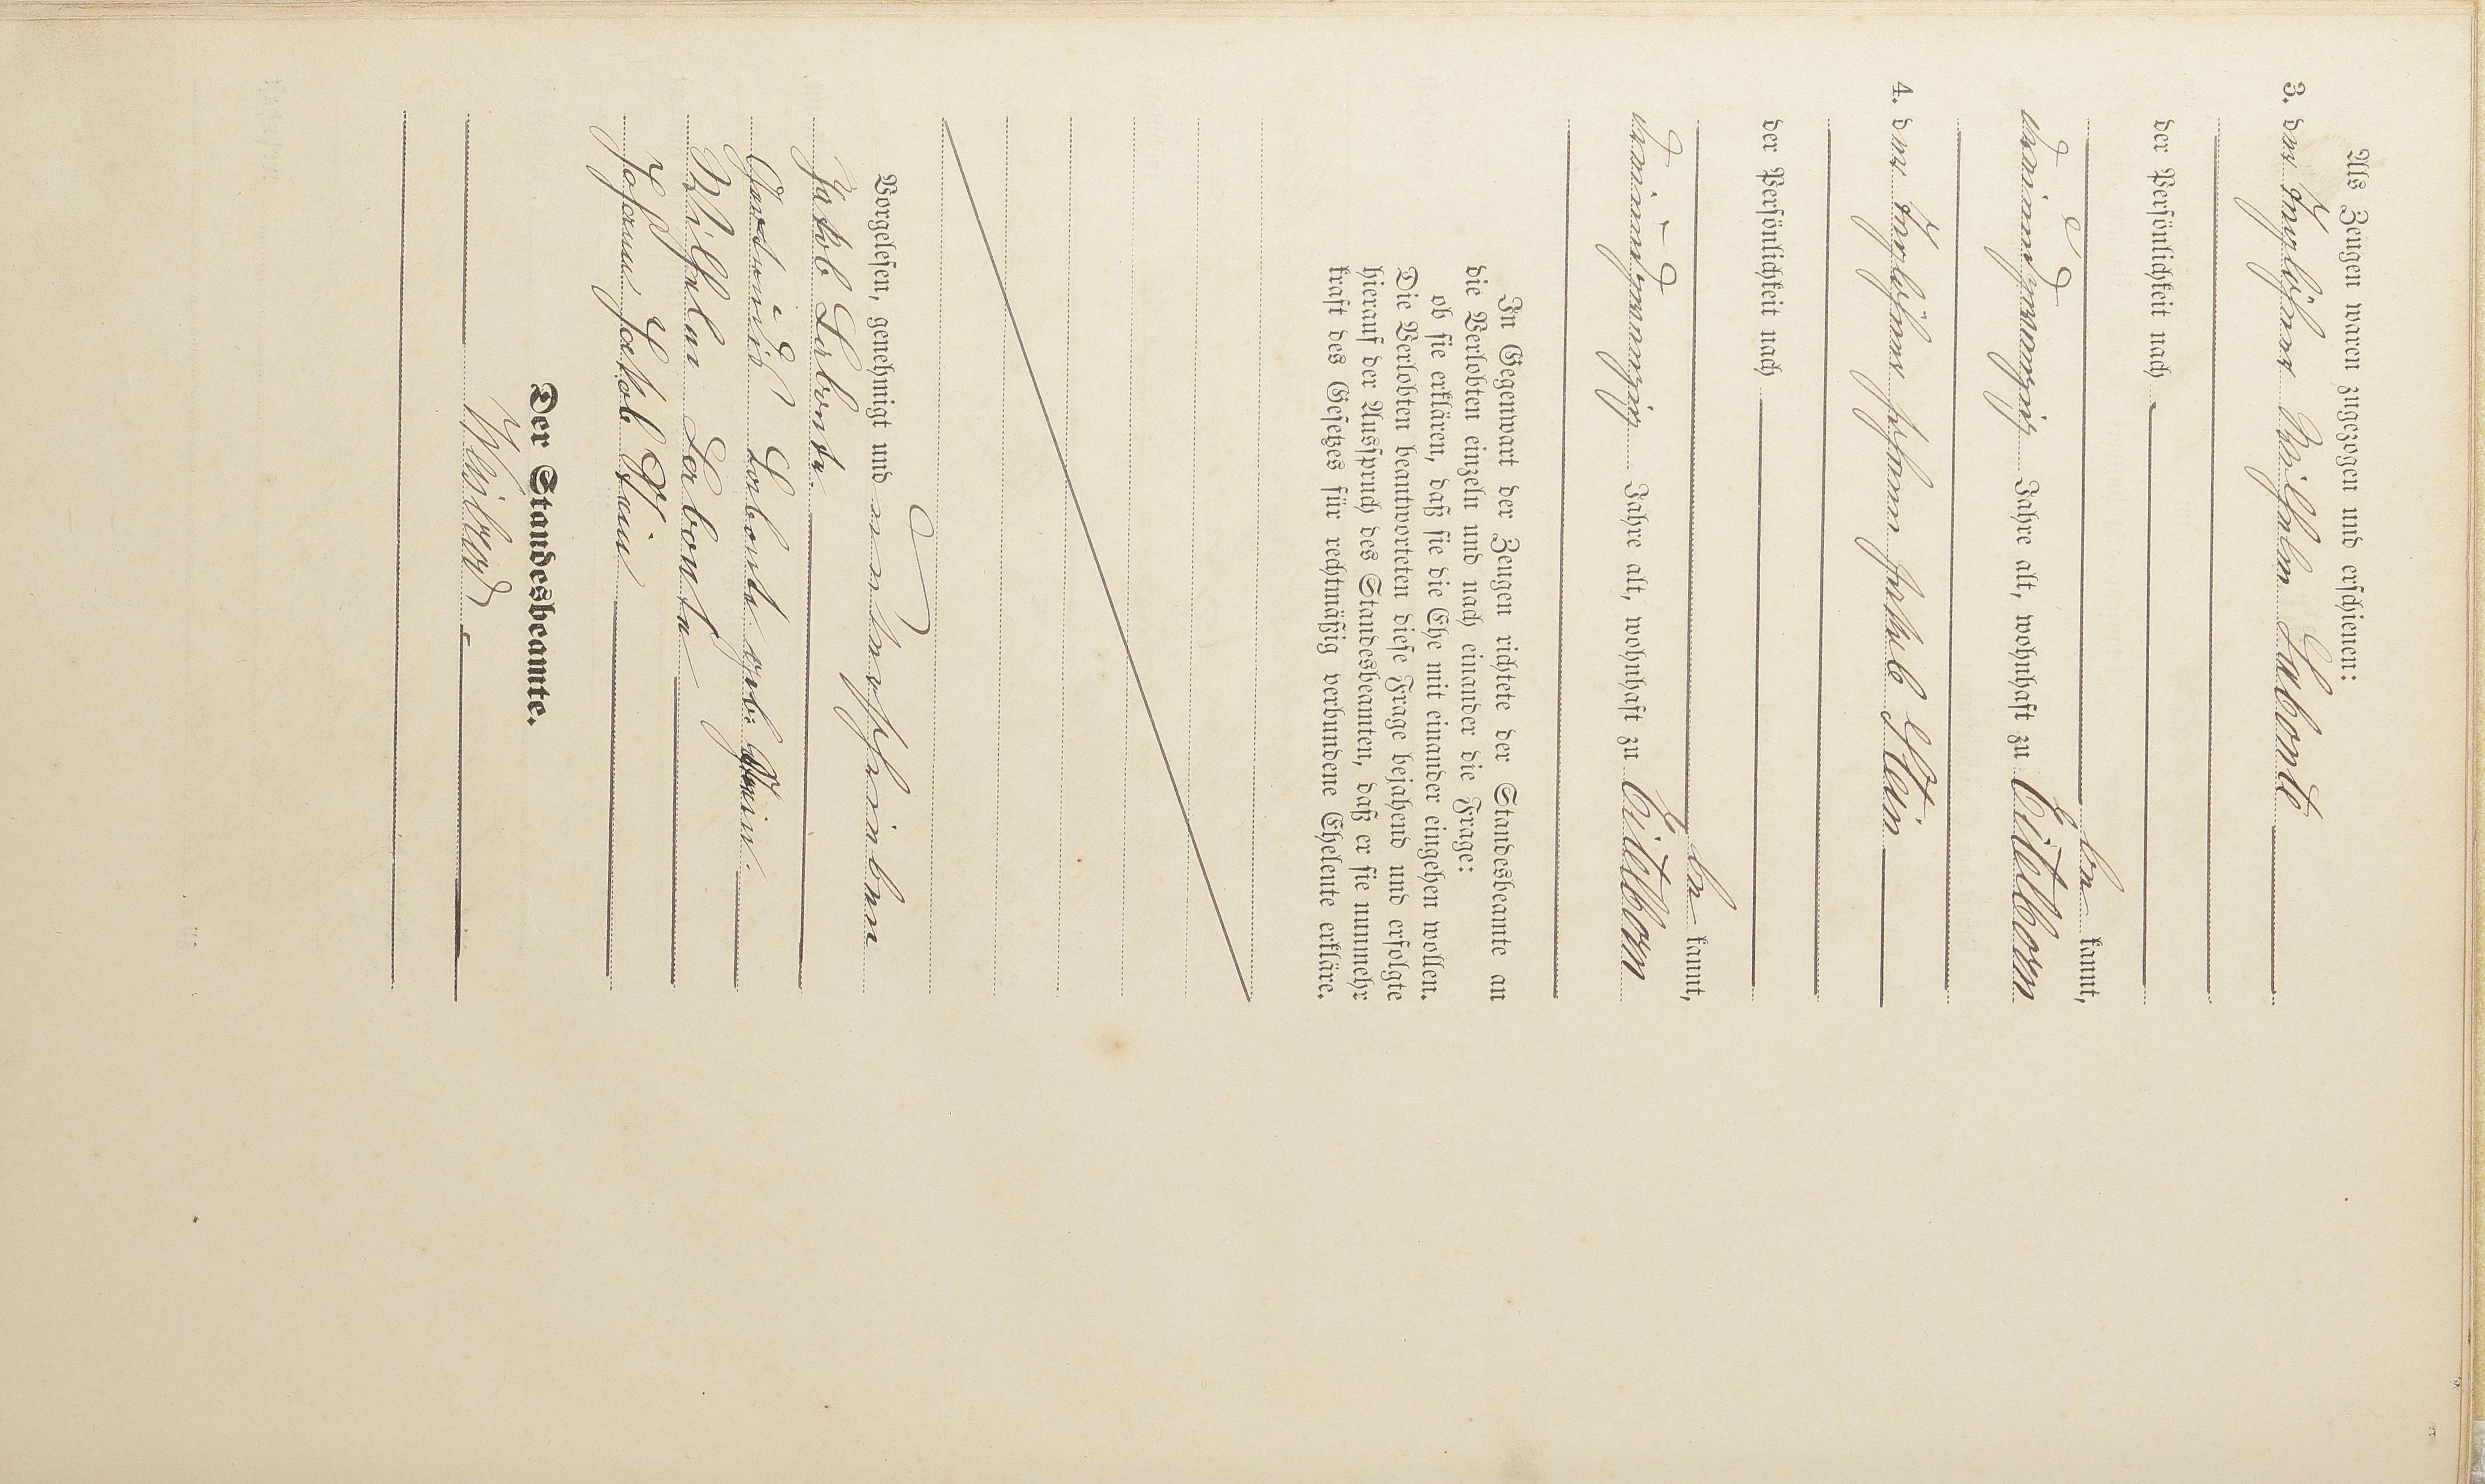 Als Zeugen waren zugezogen und erschienen:
3. der Taglöhner Wilhelm Labonte
der Persönlichkeit nach
be kannt,
dreiundzwanzig Jahre alt, wohnhaft zu Eitelborn
4. der Taglöhner Johann Jakob Stein
der Persönlichkeit nach
be kannt,
dreiundzwanzig Jahre alt, wohnhaft zu Eitelborn
In Gegenwart der Zeugen richtete der Standesbeamte an
die Verlobten einzeln und nach einander die Frage:
ob sie erklären, daß sie die Ehe mit einander eingehen wollen.
Die Verlobten beantworteten diese Frage bejahend und erfolgte
hierauf der Ausspruch des Standesbeamten, daß er sie nunmehr
kraft des Gesetzes für rechtmäßig verbundene Eheleute erkläre.
Vorgelesen, genehmigt und unterschrieben
Jakob Labonte.
Labonte geb.
Wilhelm Labonte
Johann Jakob Stein
Der Standesbeamte.